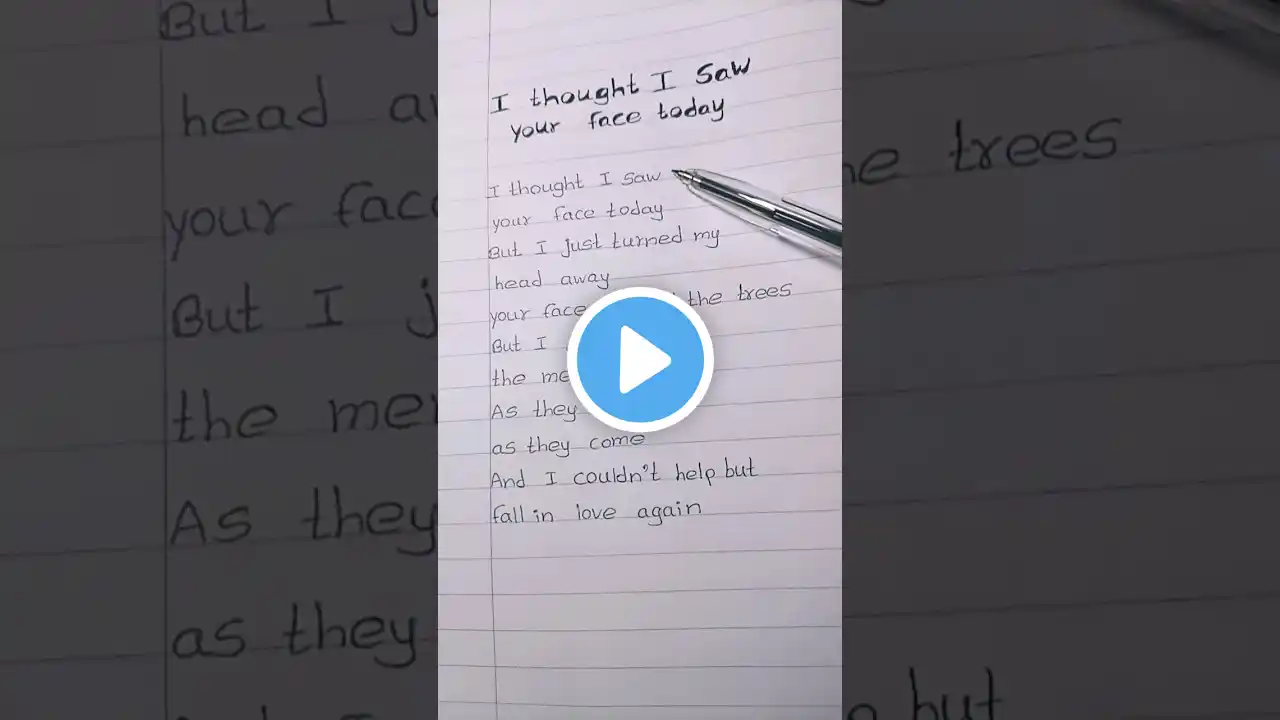 I thought I saw
your face today
I thought I saw
your face today
But I just turned my
head away
your face the trees
But I
the
As they
as they come
And I couldn't help but
fall in love again